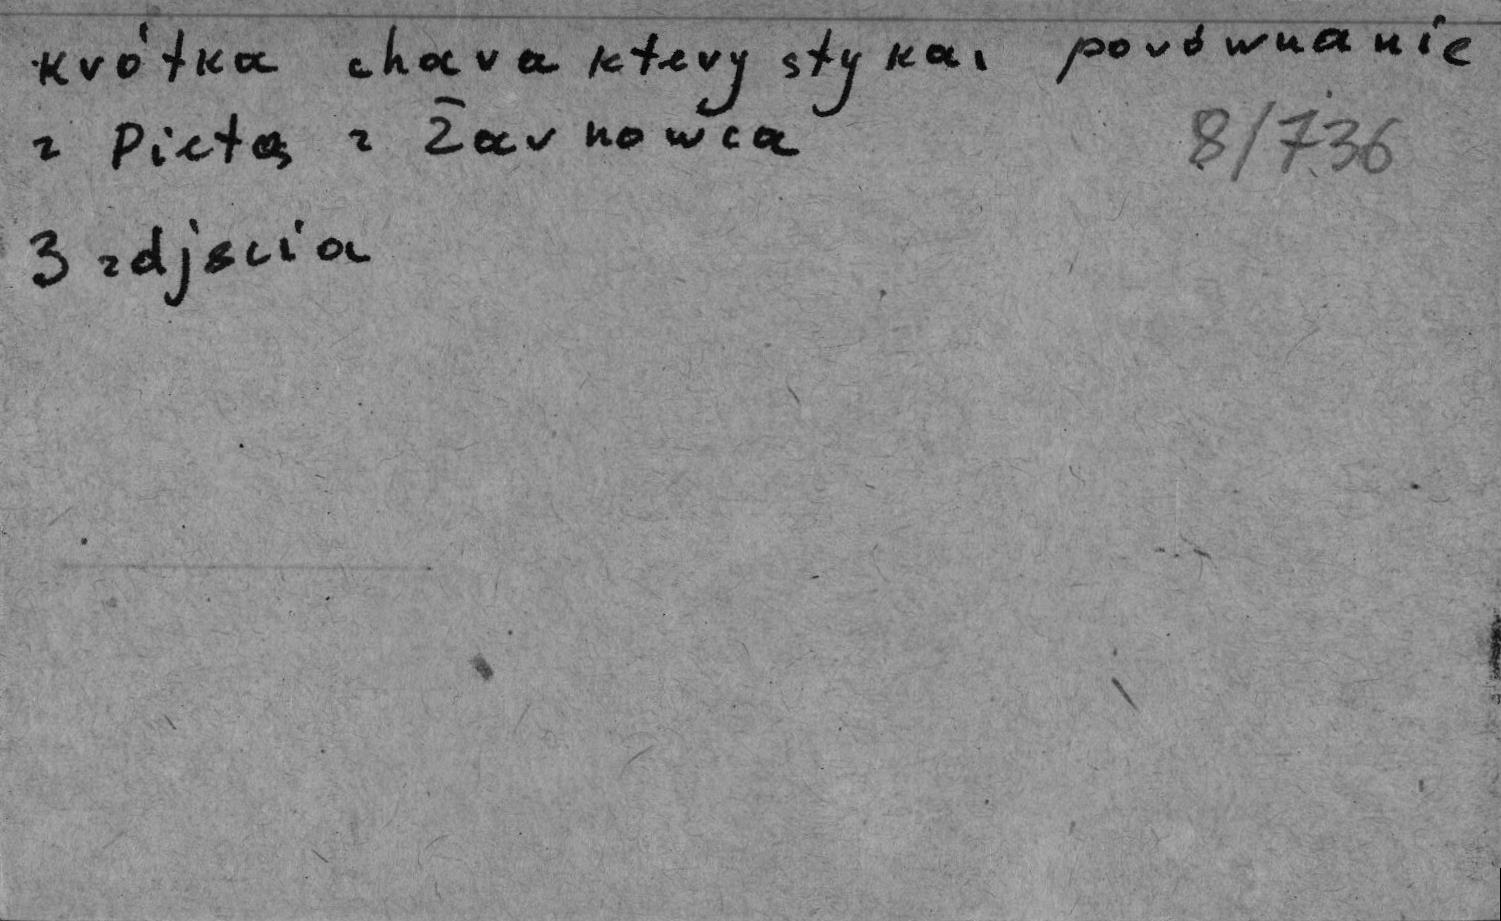 krótka charakterystyka, porównanie
z Pietą z Żarnowca
8/736
3 zdjęcia